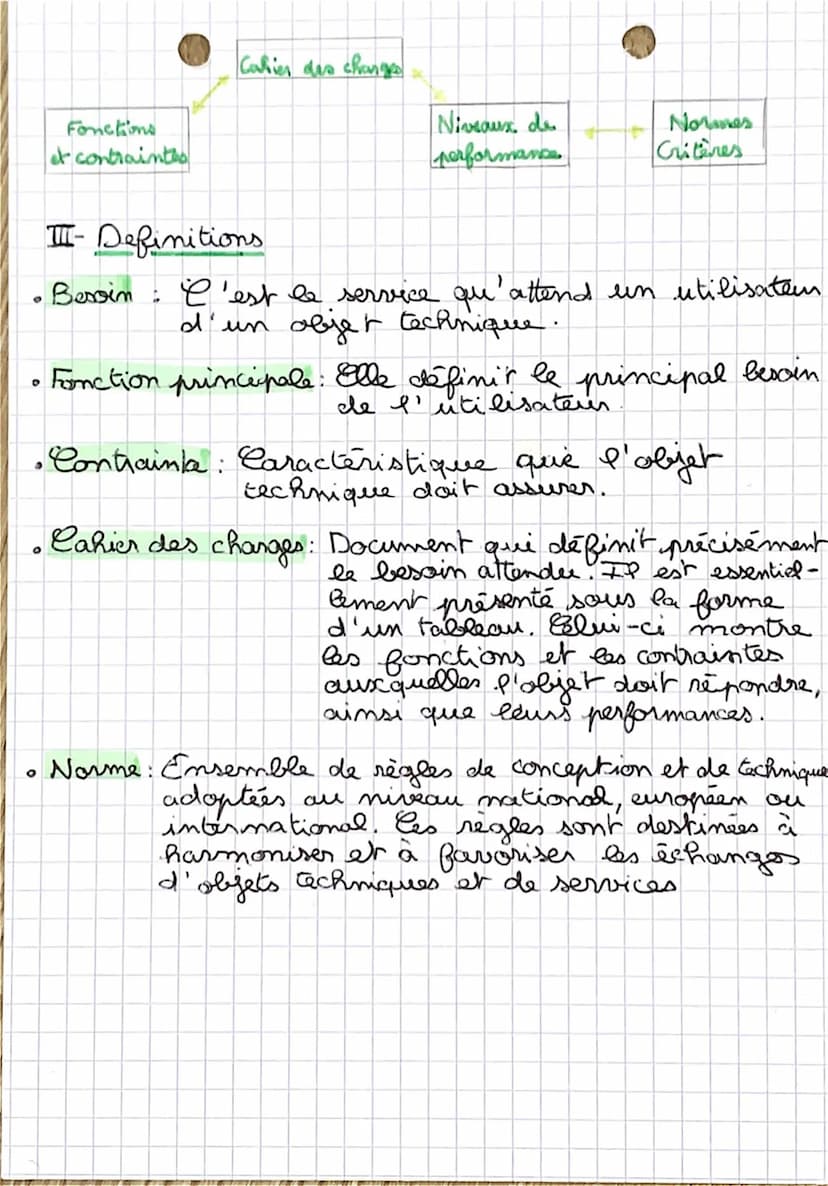 Cahier des charges
Fonctions
et contraintes
Niveaux de
performance
Normes
Critères
III- Definitions
• Besoin : C'est le service qu'attend un utilisateur
d'un objet technique.
• Fonction principale : Elle définir le principal besoin
de l'utilisateur
• Contrainte : Caractéristique que l'objet
technique doit assurer.
• Cahier des charges : Document qui définit précisément
le besoin attendu. Il est essentiel-
lement présenté sous la forme
d'un tableau. Celui-ci montre
les fonctions et les contraintes
auxquelles l'objet doit répondre,
ainsi que leurs performances.
• Norme : Ensemble de règles de conception et de technique
adoptées au niveau national, européen ou
international. Ces règles sont destinées à
harmoniser et à favoriser les échanges
d'objets techniques et de services